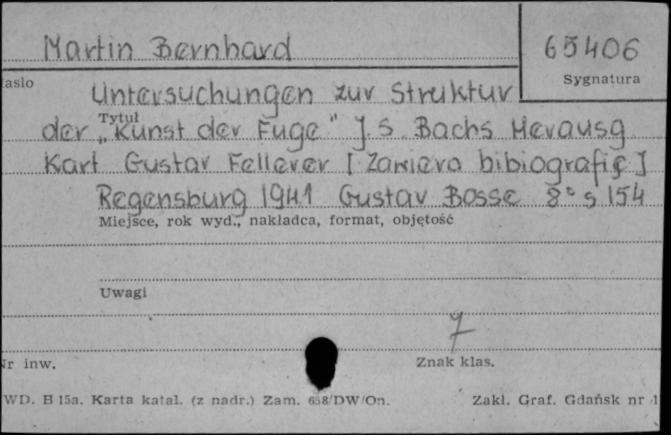 Martin Bernhard
65406
asło
Sygnatura
Untersuchungen zur Struktur
Tytuł
der „Kunst der Fuge" J. S. Bachs Herausg
Karl Gustav Fellerer [Zawiera bibiografię]
Regensburg 1941 Gustav Bosse 8° s 154
Miejsce, rok wyd., nakładca, format, objętość
Uwagi
7
Nr inw.
Znak klas.
WD. B 15a. Karta katal. (z nadr.) Zam. 658/DW/On.
Zakł. Graf. Gdańsk nr 1